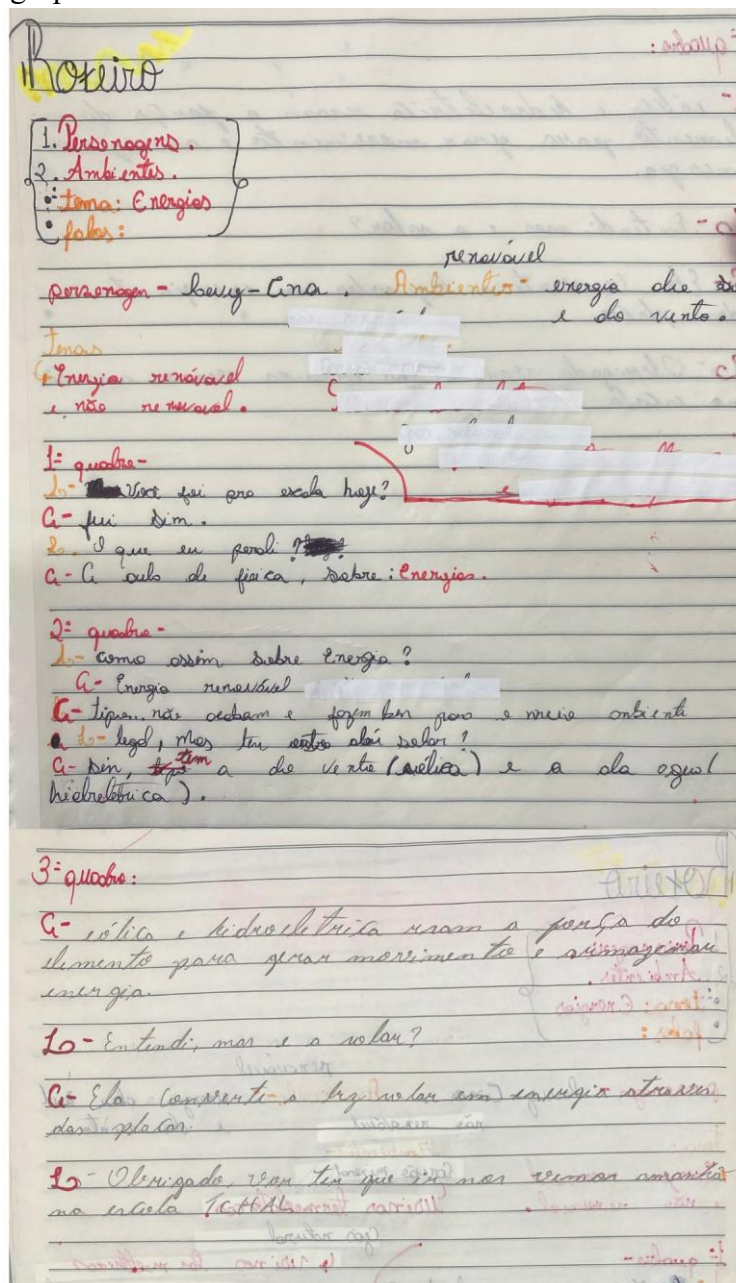 Roteiro
1. Personagens.
2. Ambientes.
• tema: Energias
• falas:
renovável
personagem - Levy - Ana. Ambientes - energia do
e do vento.
Temas
Energia renovável
e não renovável.
1º quadro -
L- Você foi pra escola hoje?
A- fui sim.
L- O que eu perdi?
A- A aula de física, sobre: Energias.
2º quadro -
L- como assim sobre Energia?
A- Energia renovável
A- tipo... não acabam e fazem bem para o meio ambiente
L- legal, mas tem solar?
A- sim, tem a do vento (eólica) e a da agua (
hidreletrica).
3º quadro:
A- eólica e hidroeletrica usam a força do
elemento para gerar movimento e armazenar
energia.
L- Entendi, mas e a solar?
A- Ela converte a luz solar em energia atraves
das placas.
L- Obrigado, vou ter que ir nos vemos amanhã
na escola TCHAU